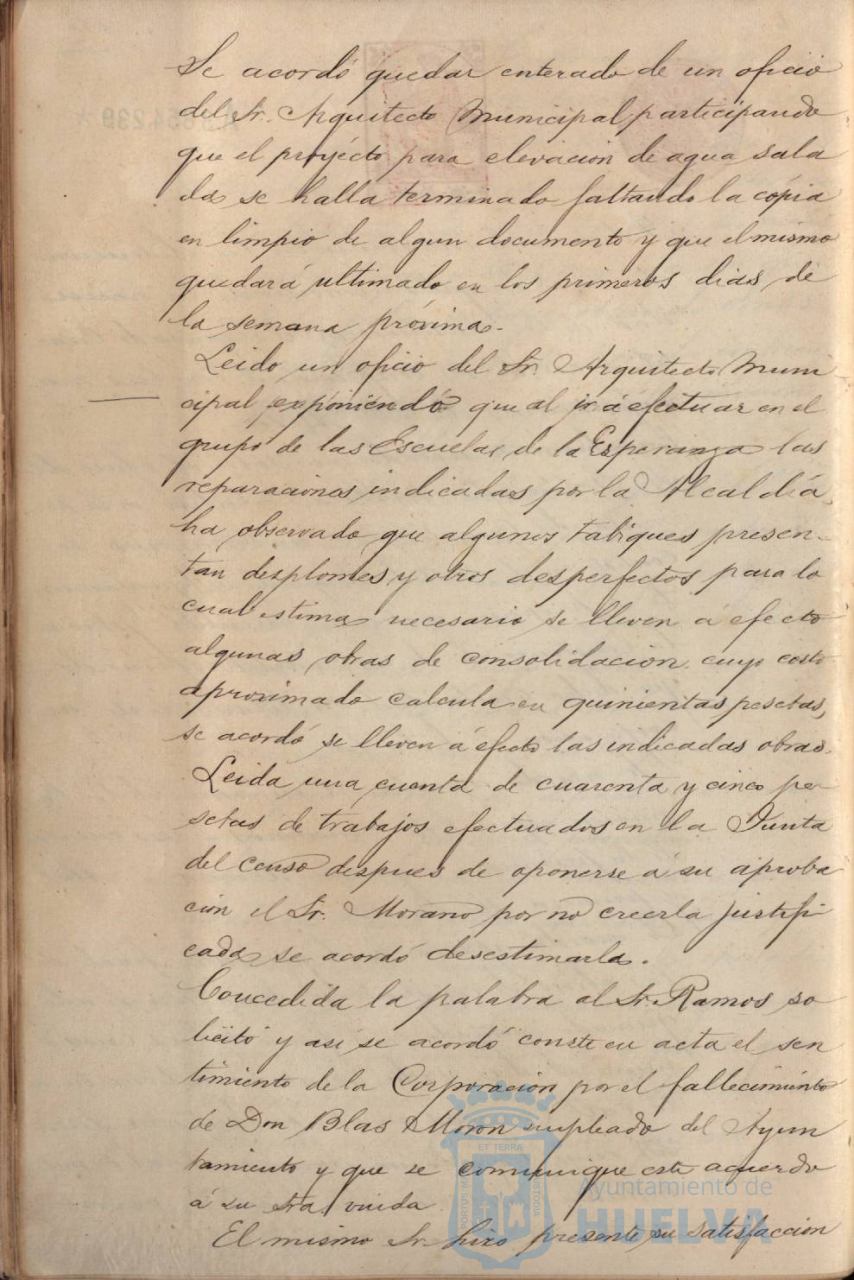 Se acordó quedar enterado de un oficio
del Sr. Arquitecto Municipal participando
que el proyécto para elevación de agua sala
da se halla terminado faltando la cópia
en limpio de algun documento y que el mismo
quedará ultimado en los primeros dias de
la semana próxima.
Leido un oficio del Sr. Arquitecto Muni
cipal exponiendo que al ir á efectuar en el
grupo de las Escuelas de la Esperanza las
reparaciones indicadas por la Alcaldía,
ha observado que algunos tabiques presen-
tan desplomes y otros desperfectos para lo
cual estima necesario se lleven á efecto
algunas obras de consolidacion cuyo costo
aproximado calcula en quinientas pesetas,
se acordó se lleven á efecto las indicadas obras.
Leida una cuenta de cuarenta y cinco pe
setas de trabajos efectuados en la Junta
del censo despues de oponerse á su aproba
ción el Sr. Morano por no creerla justifi
cada se acordó desestimarla.
Concedida la palabra al Sr. Ramos so
licitó y asi se acordó conste en acta el sen
timiento de la Corporación por el fallecimiento
de Don Blas Moron empleado del Ayun
tamiento y que se comunique este acuerdo
á su Sra. viuda
El mismo Sr. hizo presente su satisfaccion
ET TERRA
Ayuntamiento de
HUELVA